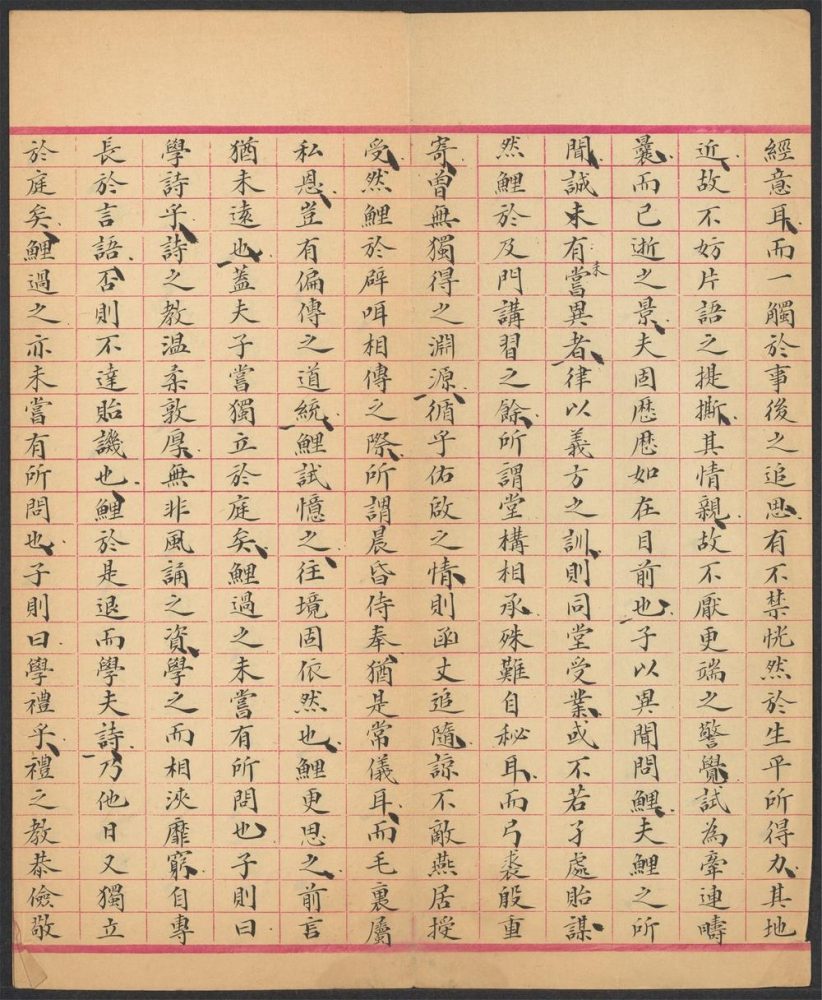 經意耳而一觸於事後之追思有不禁恍然於生平所得力其地
近故不妨片語之提撕其情親故不厭更端之警覺試為牽連疇
曩而已逝之景夫固歷歷如在目前也子以異聞問鯉夫鯉之所
聞誠未有嘗異者律以義方之訓則同堂受業或不若孑處貽謀
未
然鯉於及門講習之餘所謂堂構相承殊難自秘耳而弓裘殷重
寄曾無獨得之淵源循乎佑啟之情則函丈追隨諒不敵燕居授
受然鯉於辟咡相傳之際所謂晨昏侍奉猶是常儀耳而毛裏屬
私恩豈有偏傳之道統鯉試憶之往境固依然也鯉更思之前言
猶未遠也蓋夫子嘗獨立於庭矣鯉過之未嘗有所問也子則曰
學詩乎詩之教溫柔敦厚無非風誦之資學之而相浹靡窮自專
長於言語否則不達貽譏也鯉於是退而學夫詩乃他日又獨立
於庭矣鯉過之亦未嘗有所問也子則曰學禮乎禮之教恭儉敬